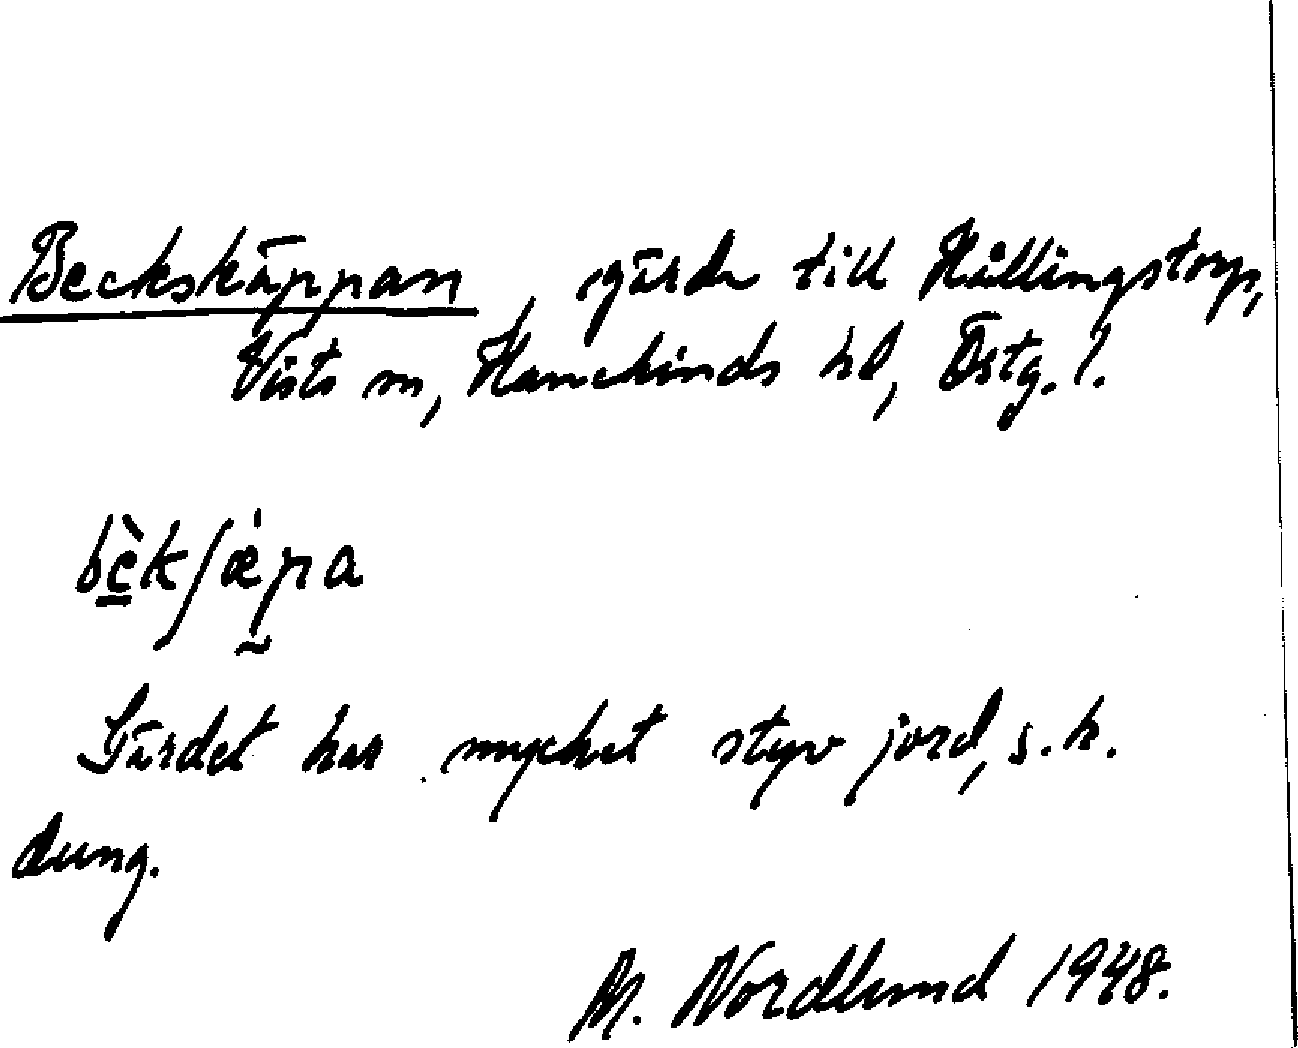 Beckskäppan, gärde till Hållingstorp,
Vists sn, Hanekinds hd, Östg. l.
bèkʃæ̀pa
Gärdet har mycket styv jord, s. k.
dung.
M. Nordlund 1948.